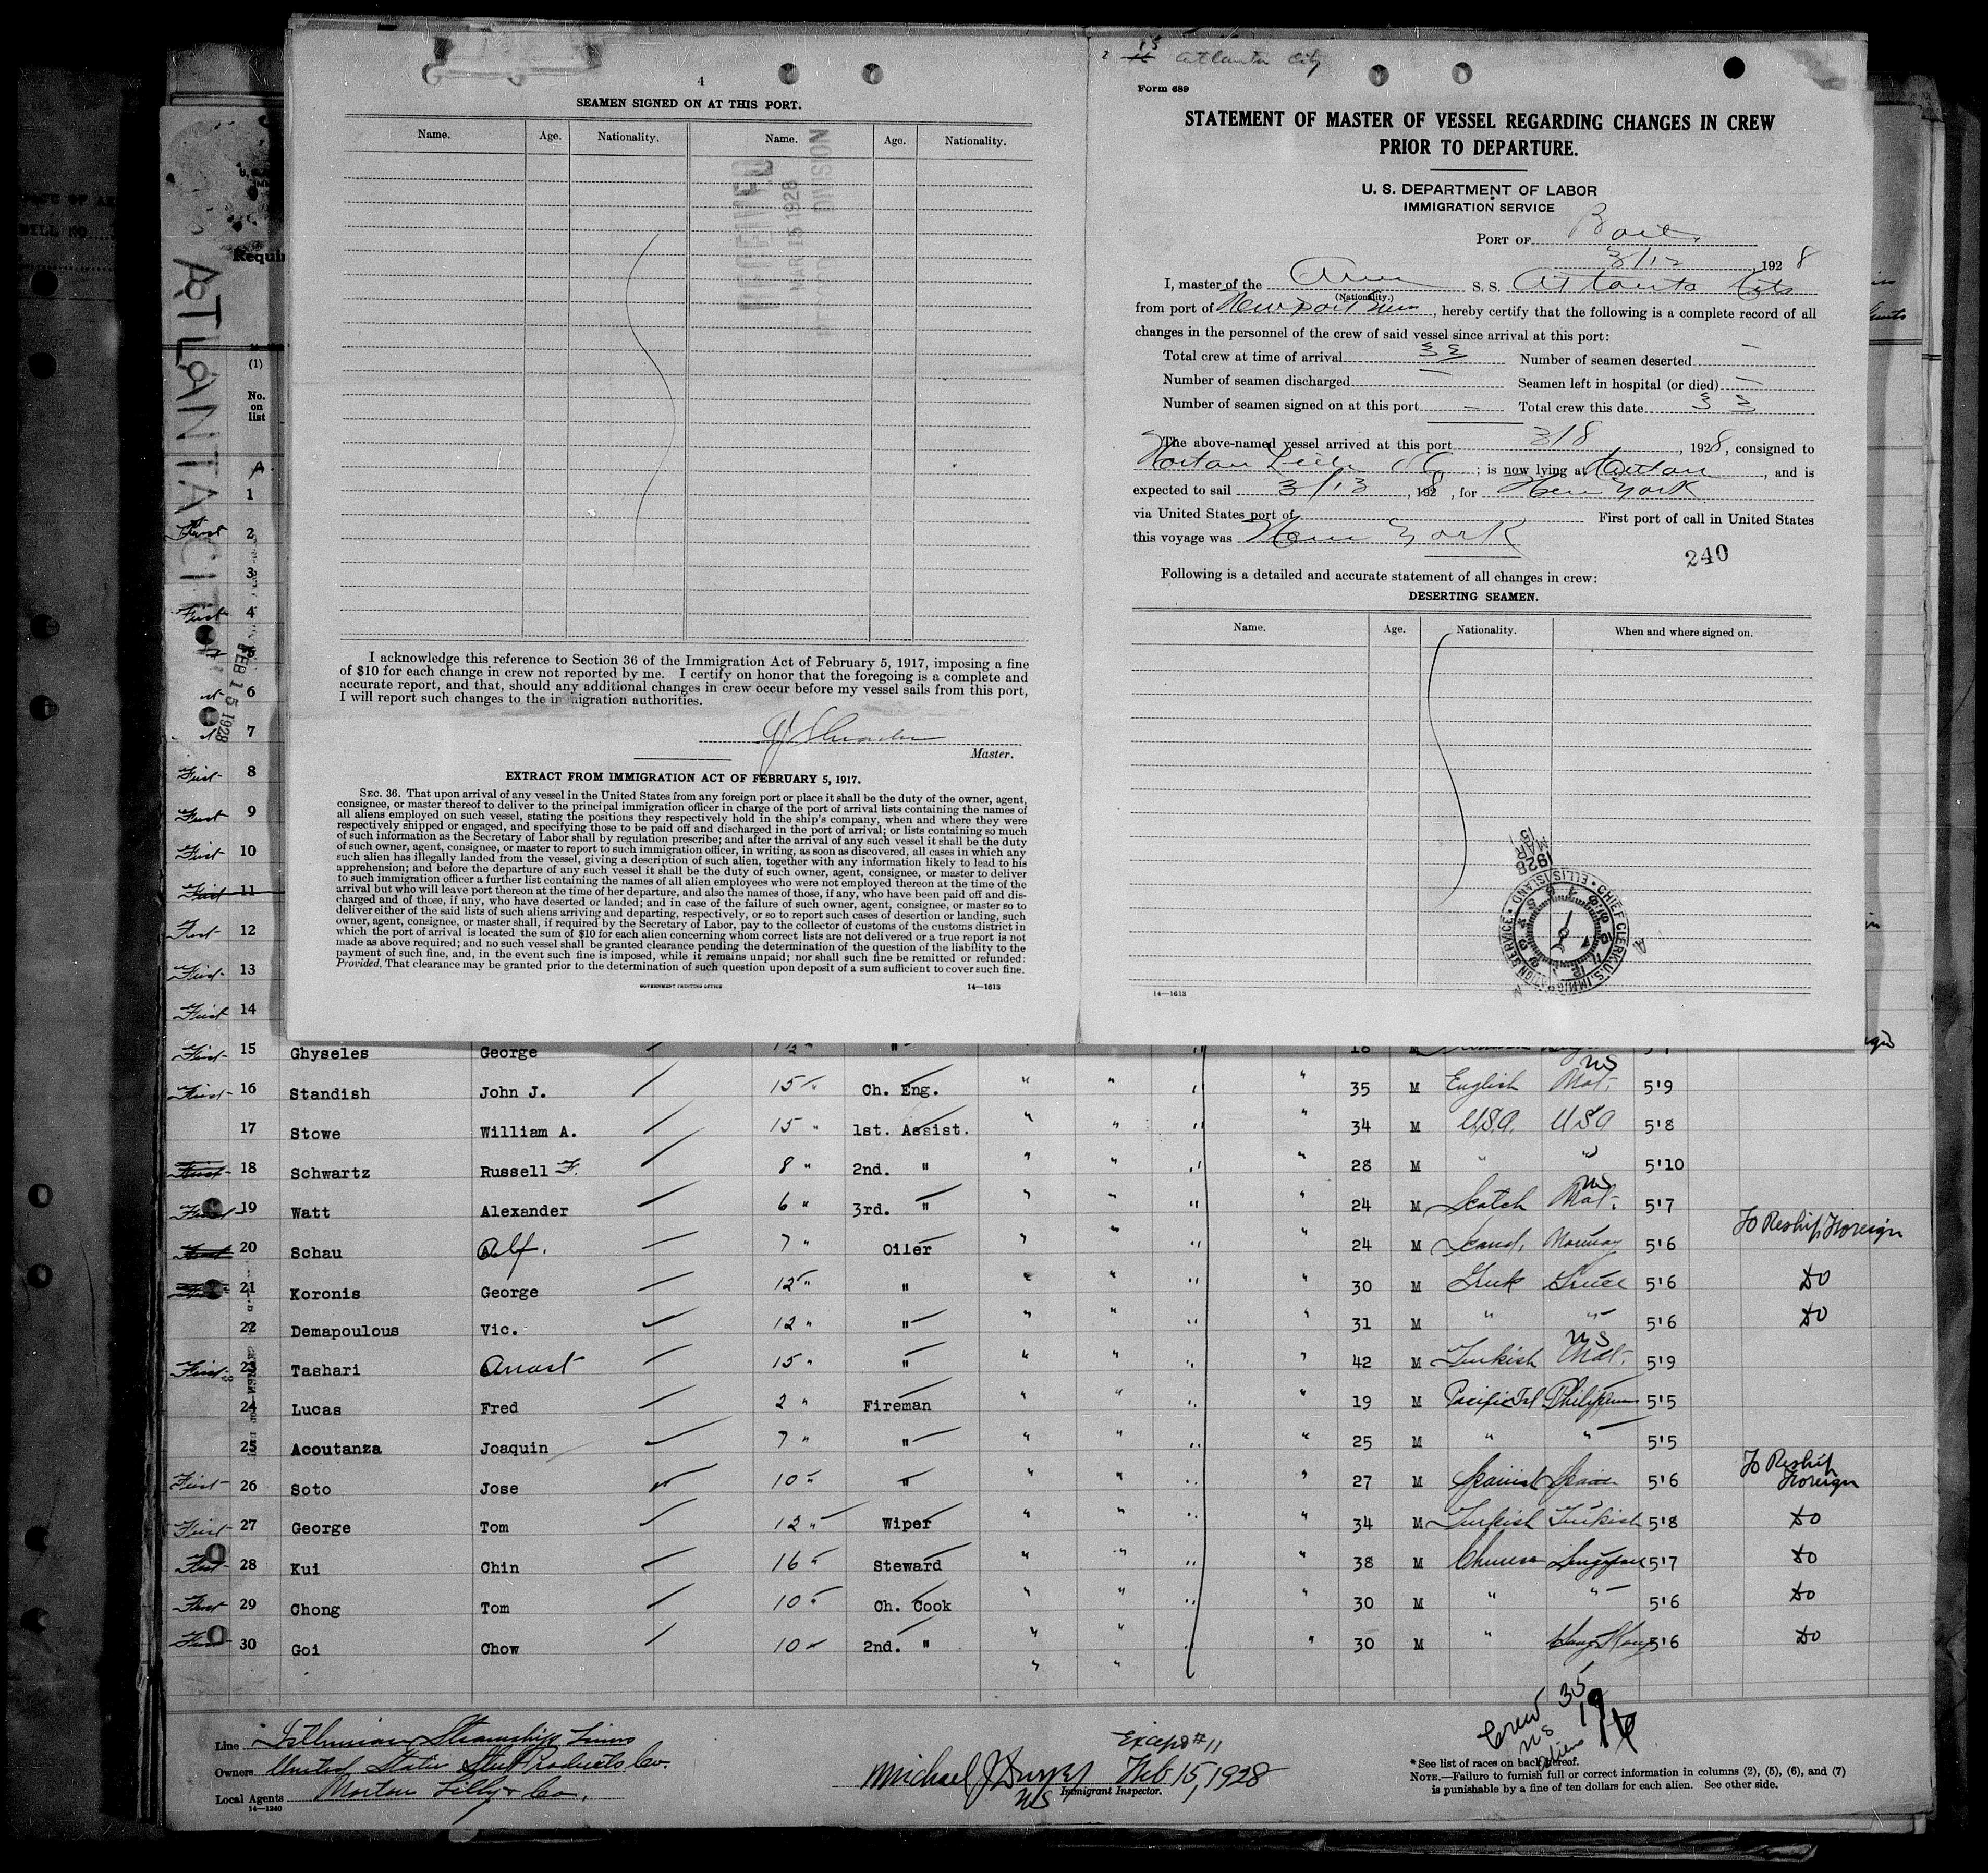 4
SEAMEN SIGNED ON AT THIS PORT.
Name. Age. Nationality. Name. Age. Nationality.
RECEIVED
MAR 15 1928
DIVISION
I acknowledge this reference to Section 36 of the Immigration Act of February 5, 1917, imposing a fine
of $10 for each change in crew not reported by me. I certify on honor that the foregoing is a complete and
accurate report, and that, should any additional changes in crew occur before my vessel sails from this port,
I will report such changes to the immigration authorities.
Master.
EXTRACT FROM IMMIGRATION ACT OF FEBRUARY 5, 1917.
SEC. 36. That upon arrival of any vessel in the United States from any foreign port or place it shall be the duty of the owner, agent,
consignee, or master thereof to deliver to the principal immigration officer in charge of the port of arrival lists containing the names of
all aliens employed on such vessel, stating the positions they respectively hold in the ship's company, when and where they were
respectively shipped or engaged, and specifying those to be paid off and discharged in the port of arrival; or lists containing so much
of such information as the Secretary of Labor shall by regulation prescribe; and after the arrival of any such vessel it shall be the duty
of such owner, agent, consignee, or master to report to such immigration officer, in writing, as soon as discovered, all cases in which any
such alien has illegally landed from the vessel, giving a description of such alien, together with any information likely to lead to his
apprehension; and before the departure of any such vessel it shall be the duty of such owner, agent, consignee, or master to deliver
to such immigration officer a further list containing the names of all alien employees who were not employed thereon at the time of the
arrival but who will leave port thereon at the time of her departure, and also the names of those, if any, who have been paid off and dis-
charged and of those, if any, who have deserted or landed; and in case of the failure of such owner, agent, consignee, or master so to
deliver either of the said lists of such aliens arriving and departing, respectively, or so to report such cases of desertion or landing, such
owner, agent, consignee, or master shall, if required by the Secretary of Labor, pay to the collector of customs of the customs district in
which the port of arrival is located the sum of $10 for each alien concerning whom correct lists are not delivered or a true report is not
made as above required; and no such vessel shall be granted clearance pending the determination of the question of the liability to the
payment of such fine, and, in the event such fine is imposed, while it remains unpaid; nor shall such fine be remitted or refunded:
Provided, That clearance may be granted prior to the determination of such question upon deposit of a sum sufficient to cover such fine.
GOVERNMENT PRINTING OFFICE 14—1613
Atlanta City
Form 689
STATEMENT OF MASTER OF VESSEL REGARDING CHANGES IN CREW
PRIOR TO DEPARTURE.
U. S. DEPARTMENT OF LABOR
IMMIGRATION SERVICE
PORT OF
3/12, 1928
I, master of the Am S. S. Atlanta City
(Nationality.)
from port of Newport News, hereby certify that the following is a complete record of all
changes in the personnel of the crew of said vessel since arrival at this port:
Total crew at time of arrival 33 Number of seamen deserted -
Number of seamen discharged - Seamen left in hospital (or died) -
Number of seamen signed on at this port - Total crew this date 33
The above-named vessel arrived at this port 3/8, 1928, consigned to
; is now lying at , and is
expected to sail 3/13, 1928, for New York
via United States port of First port of call in United States
this voyage was New York
240
Following is a detailed and accurate statement of all changes in crew:
DESERTING SEAMEN.
Name. Age. Nationality. When and where signed on.
MAR 15 1928
CHIEF CLERK, U.S. IMMIGRATION SERVICE • ELLIS ISLAND
14—1613
ATLANTA CITY
FEB 15 1928
(1)
No.
on
list
1
First 2
3
First 4
5
6
7
First 8
First 9
First 10
First 11
First 12
First 13
First 14
First 15 Ghyseles George 1½ " " 18 M
First 16 Standish John J. 15 " Ch. Eng. " " " " 35 M English US Nat. 5'9
17 Stowe William A. 15 " 1st. Assist. " " " " 34 M U.S.A. USA 5'8
First 18 Schwartz Russell F. 8 " 2nd. " " " " " 28 M " " 5'10
First 19 Watt Alexander 6 " 3rd. " " " " " 24 M Scotch US Nat. 5'7
First 20 Schau Alf. 7 " Oiler " " " " 24 M Scand. Norway 5'6 To Reship Foreign
First 21 Koronis George 12 " " " " " " 30 M Greek Greece 5'6 Do
22 Demapoulous Vic. 12 " " " " " " 31 M " " 5'6 Do
First 23 Tashari Anast 15 " " " " " " 42 M Turkish US Nat. 5'9
24 Lucas Fred 2 " Fireman " " " " 19 M Pacific Isl Philippines 5'5
25 Acoutanza Joaquin 7 " " " " " " 25 M " " 5'5
First 26 Soto Jose 10 " " " " " " 27 M Spanish Spain 5'6 To Reship Foreign
First 27 George Tom 12 " Wiper " " " " 34 M Turkish Turkish 5'8 Do
First 28 Kui Chin 16 " Steward " " " " 38 M Chinese Singapore 5'7 Do
First 29 Chong Tom 10 " Ch. Cook " " " " 30 M " " 5'6 Do
First 30 Goi Chow 10 " 2nd. " " " " " 30 M " Hong Kong 5'6 Do
Crew 35
US 19
Aliens
Line Isthmian Steamship Lines
Owners United States Steel Products Co.
Local Agents Norton Lilly & Co.
14—1240
Except #11
Feb 15, 1928
Immigrant Inspector.
* See list of races on back hereof.
NOTE.—Failure to furnish full or correct information in columns (2), (5), (6), and (7)
is punishable by a fine of ten dollars for each alien. See other side.